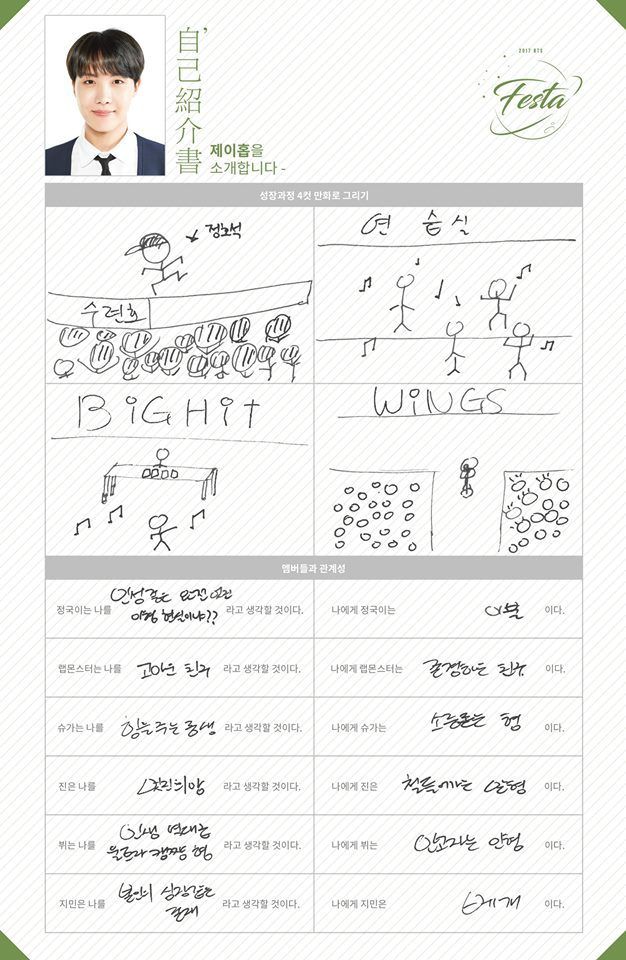 2017 BTS
Festa
自己紹介書
제이홉을
소개합니다 -
성장과정 4컷 만화로 그리기
정호석
수련회
연습실
BiGHit
WiNGS
멤버들과 관계성
정국이는 나를
이형 현실이냐??
라고 생각할 것이다.
나에게 정국이는 이다.
랩몬스터는 나를 고마운 친구 라고 생각할 것이다.
나에게 랩몬스터는 존경하는 친구 이다.
슈가는 나를 힘을 주는 동생 라고 생각할 것이다.
나에게 슈가는 형 이다.
진은 나를 라고 생각할 것이다.
나에게 진은 철들어가는 맏형 이다.
뷔는 나를
인생 역대급
울트라 캡짱 형
라고 생각할 것이다.
나에게 뷔는 안고자는 인형 이다.
지민은 나를
본인의 심장같은
존재
라고 생각할 것이다.
나에게 지민은 베개 이다.